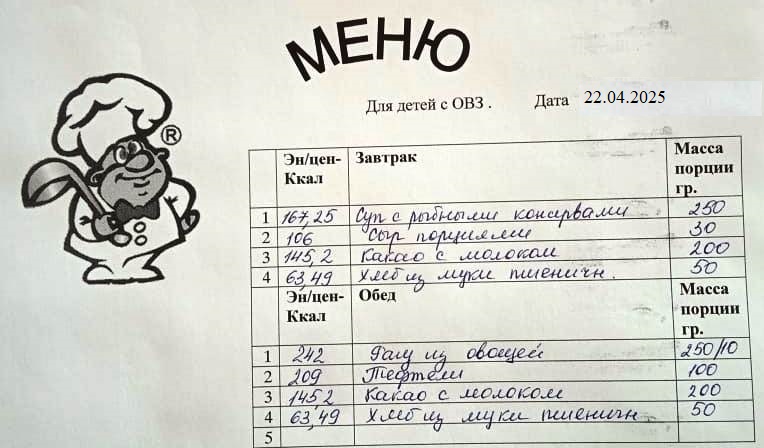 МЕНЮ
Для детей с ОВЗ . Дата 22.04.2025
®
Эн/цен-Ккал Завтрак Масса порции гр.
1 167,25 Суп с рыбными консервами 250
2 106 Сыр порциями 30
3 145,2 Какао с молоком 200
4 63,49 Хлеб из муки пшеничн. 50
Эн/цен-Ккал Обед Масса порции гр.
1 242 Рагу из овощей 250/10
2 209 Тефтели 100
3 145,2 Какао с молоком 200
4 63,49 Хлеб из муки пшеничн. 50
5